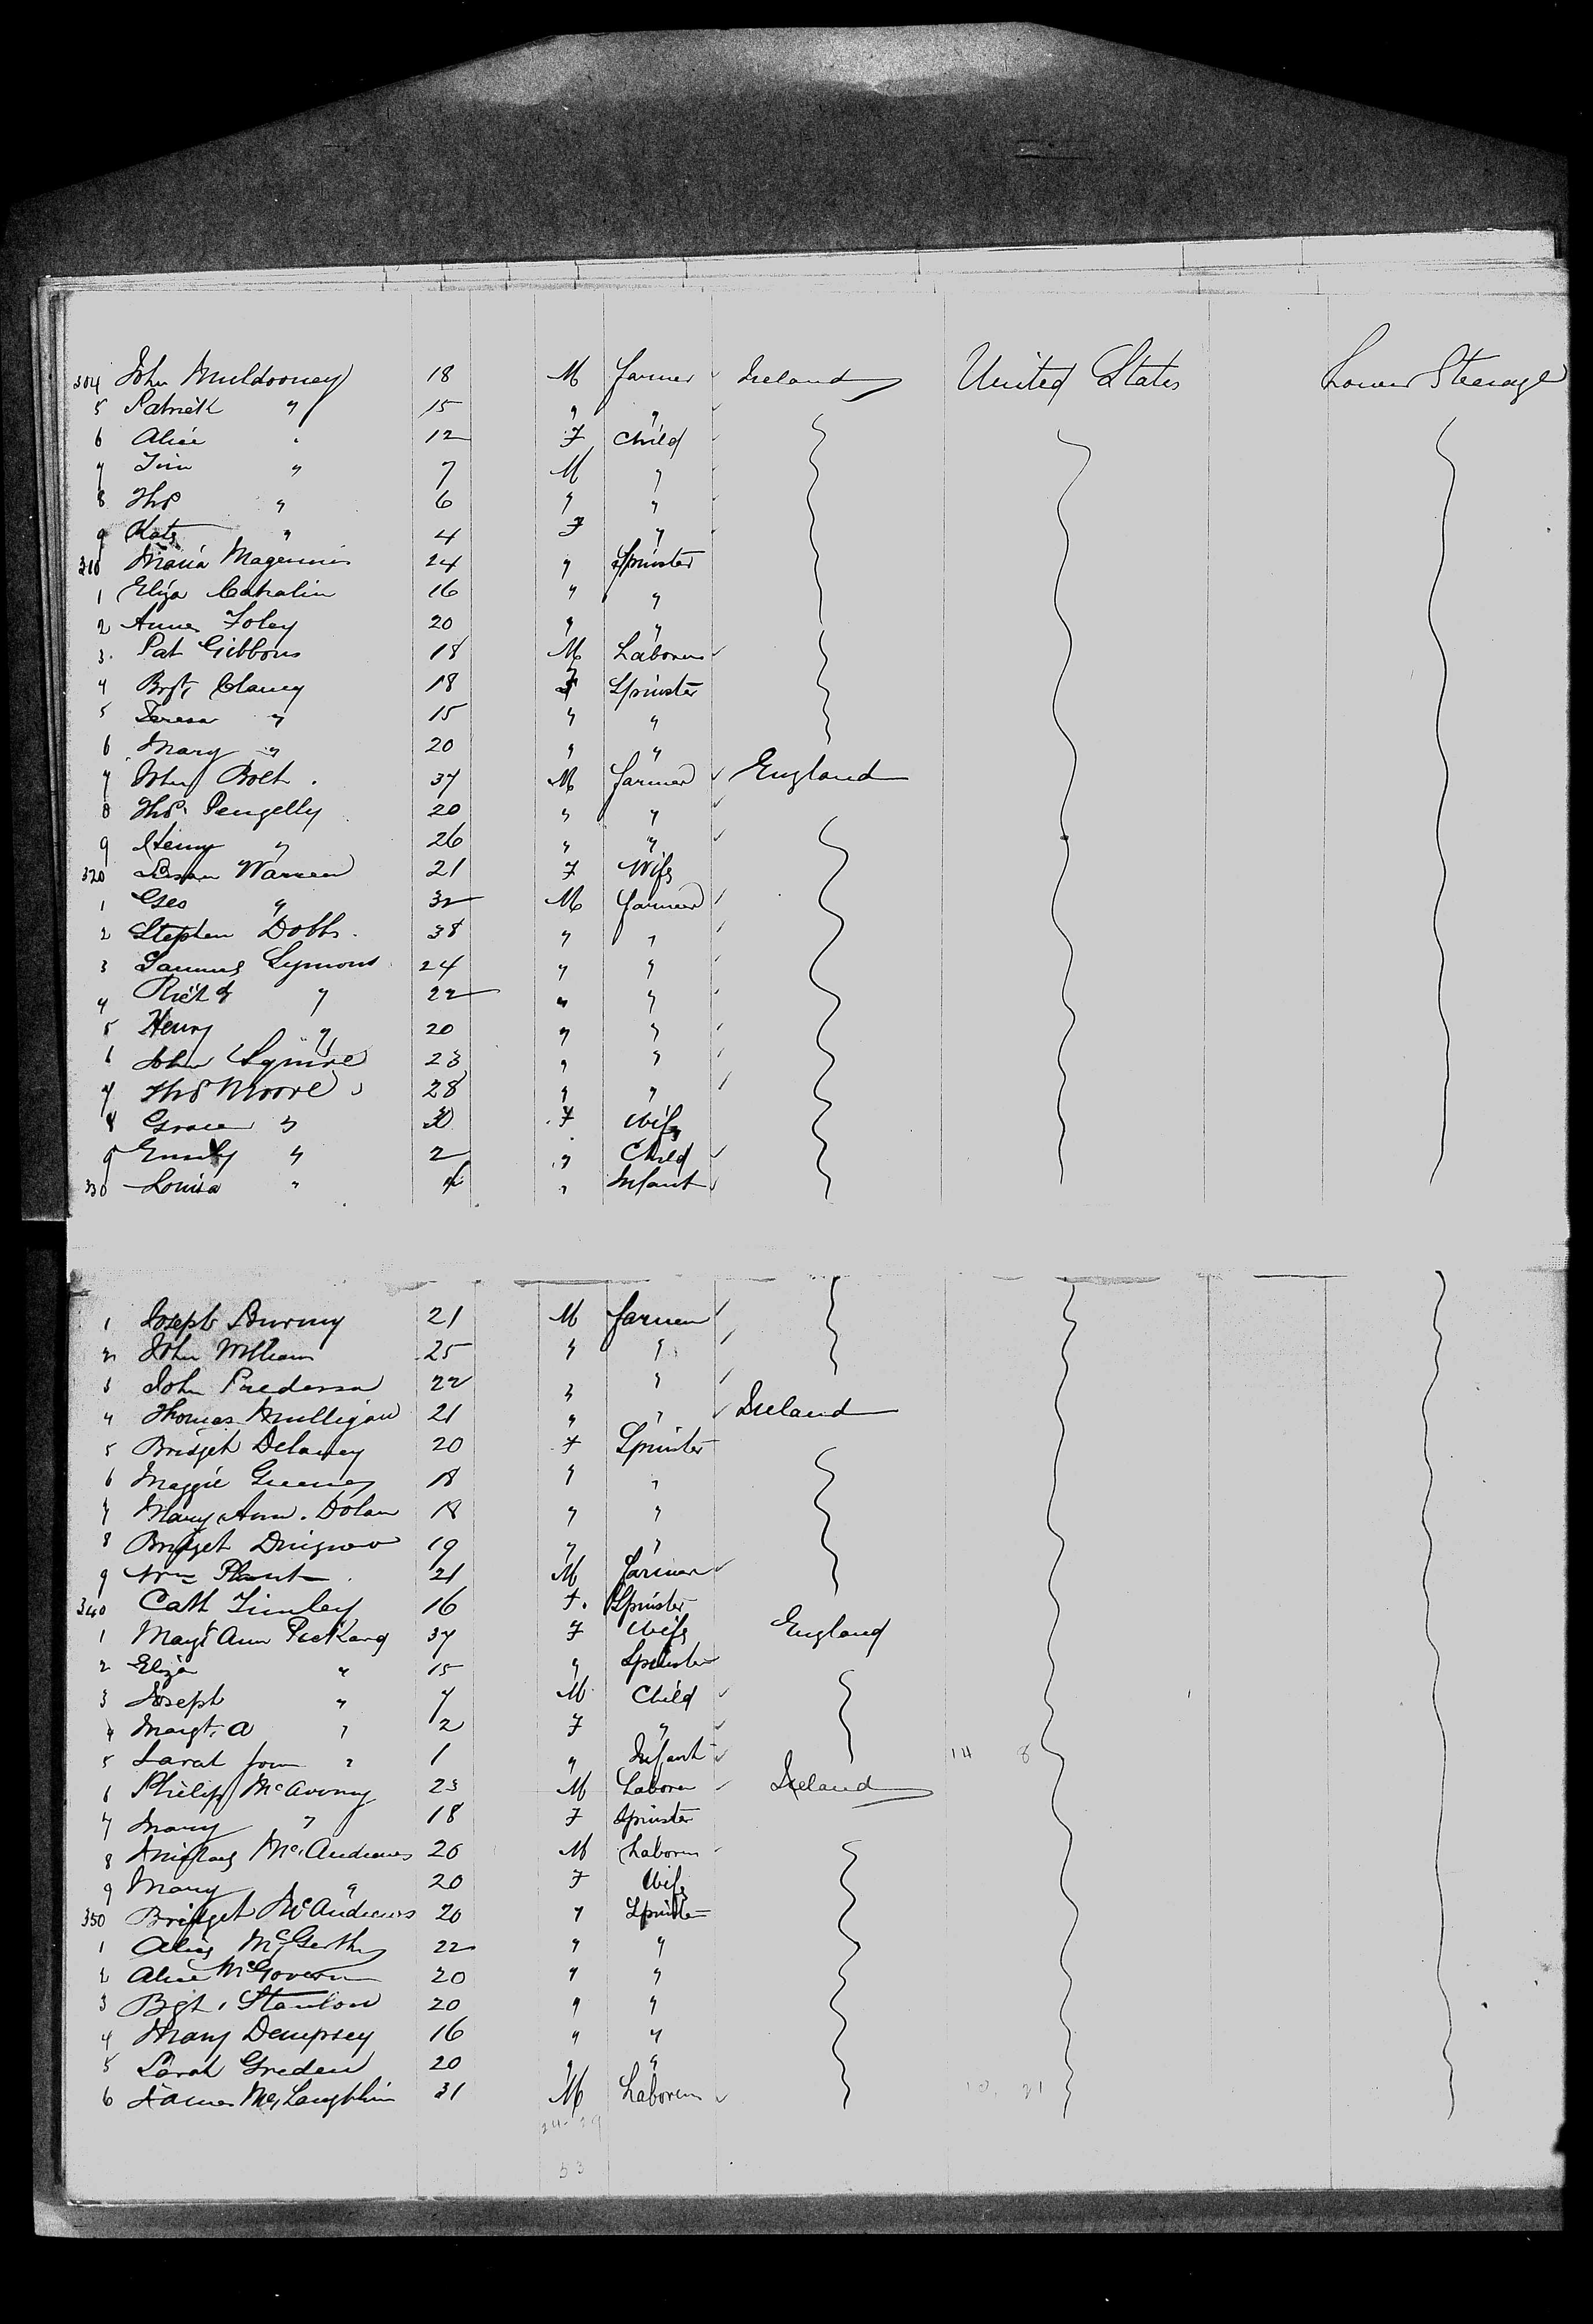 304 John Muldooney 18 M farmer Ireland United States Lower Steerage
5 Patrick " 15 " "
6 Alice " 12 F Child
7 Jim " 7 M "
8 Thos " 6 " "
9 Kate " 4 F "
310 Maria Magennis 24 " Spinster
1 Eliza 16 " "
2 Anne Foley 20 " "
3 Pat Gibbons 18 M Laborer
4 Bgt. Clancy 18 F Spinster
5 Teresa " 15 " "
6 Mary " 20 " "
7 John Bolt 37 M farmer England
8 Thos. Pengelly 20 " "
9 Henry " 26 " "
320 Susan Warren 21 F Wife
1 Geo " 32 M farmer
2 Stephen Dobbs 38 " "
3 Samuel Symons 24 " "
4 Richd " 22 " "
5 Henry " 20 " "
6 John Squire 23 " "
7 Thos Moore 28 " "
8 Grace " 30 F Wife
9 Emily " 2 " Child
330 Louisa " " Infant
1 Joseph 21 M farmer
2 John William 25 " "
3 John 22 " "
4 Thomas Mulligan 21 " " Ireland
5 Bridget Delaney 20 F Spinster
6 Maggie 18 " "
7 Mary Ann Dolan 18 " "
8 Bridget 19 " "
9 Wm Plant 21 M farmer
340 Cath 16 F. Spinster
1 Margt Ann Pickard 37 F Wife England
2 Eliza " 15 " Spinster
3 Joseph " 7 M Child
4 Margt. A " 2 F "
5 Sarah Jane " 1 " Infant 14 8
6 Philip McAvony 23 M Laborer Ireland
7 Mary " 18 F Spinster
8 McAndrews 26 M Laborer
9 Mary " 20 F Wife
350 Bridget McAndrews 20 " Spinster
1 Alice 22 " "
2 Alice McGovern 20 " "
3 Bgt. Stanton 20 " "
4 Mary Dempsey 16 " "
5 Sarah 20 " "
6 James McLaughlin 31 M Laborer 21
24-29
53